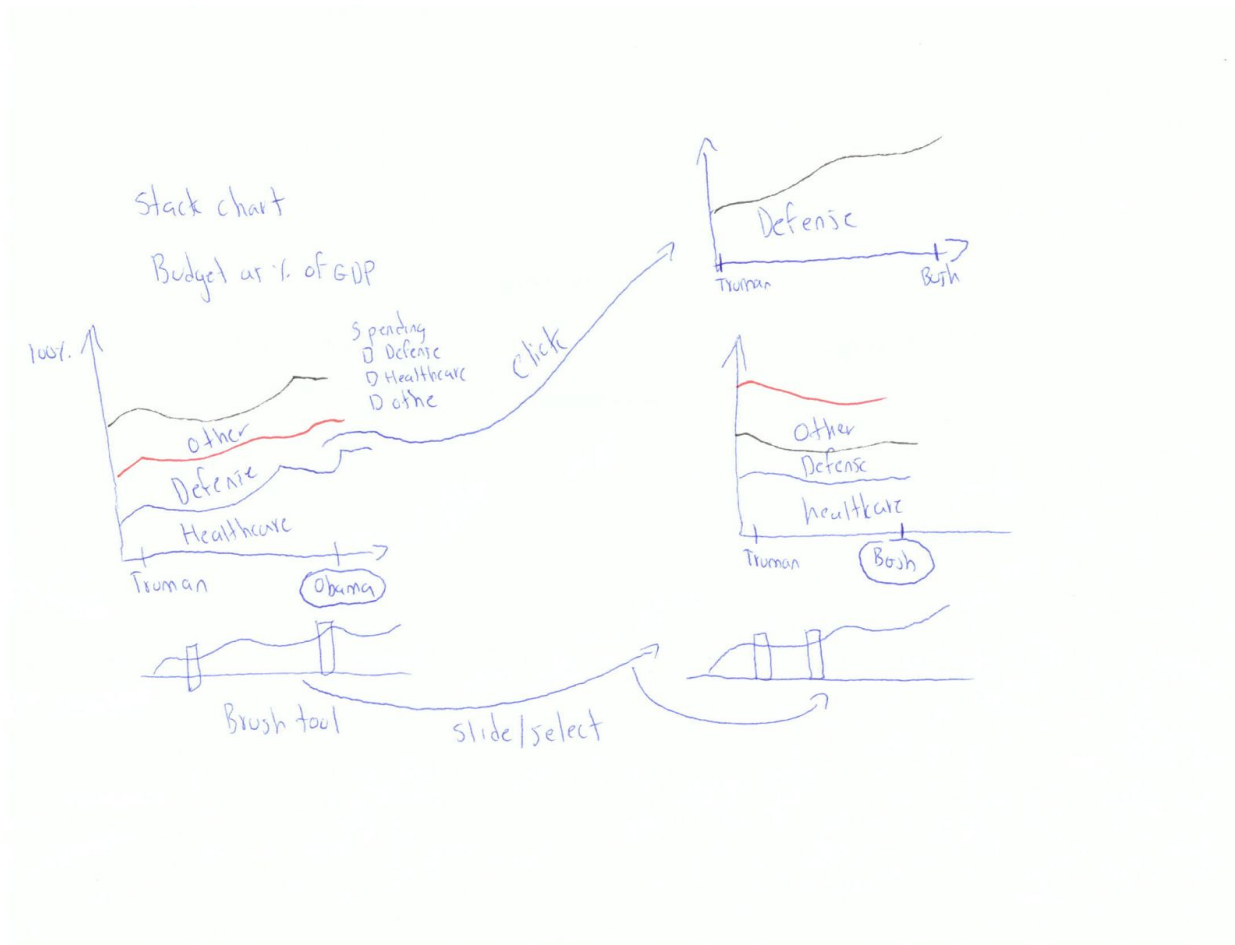 Stack chart
Budget as % of GDP
100%
Spending
Defense
Healthcare
othe
other
Defense
Healthcare
Truman
Obama
Brush tool
click
slide/select
Defense
Truman
Bush
Other
Defense
healthcare
Truman
Bush